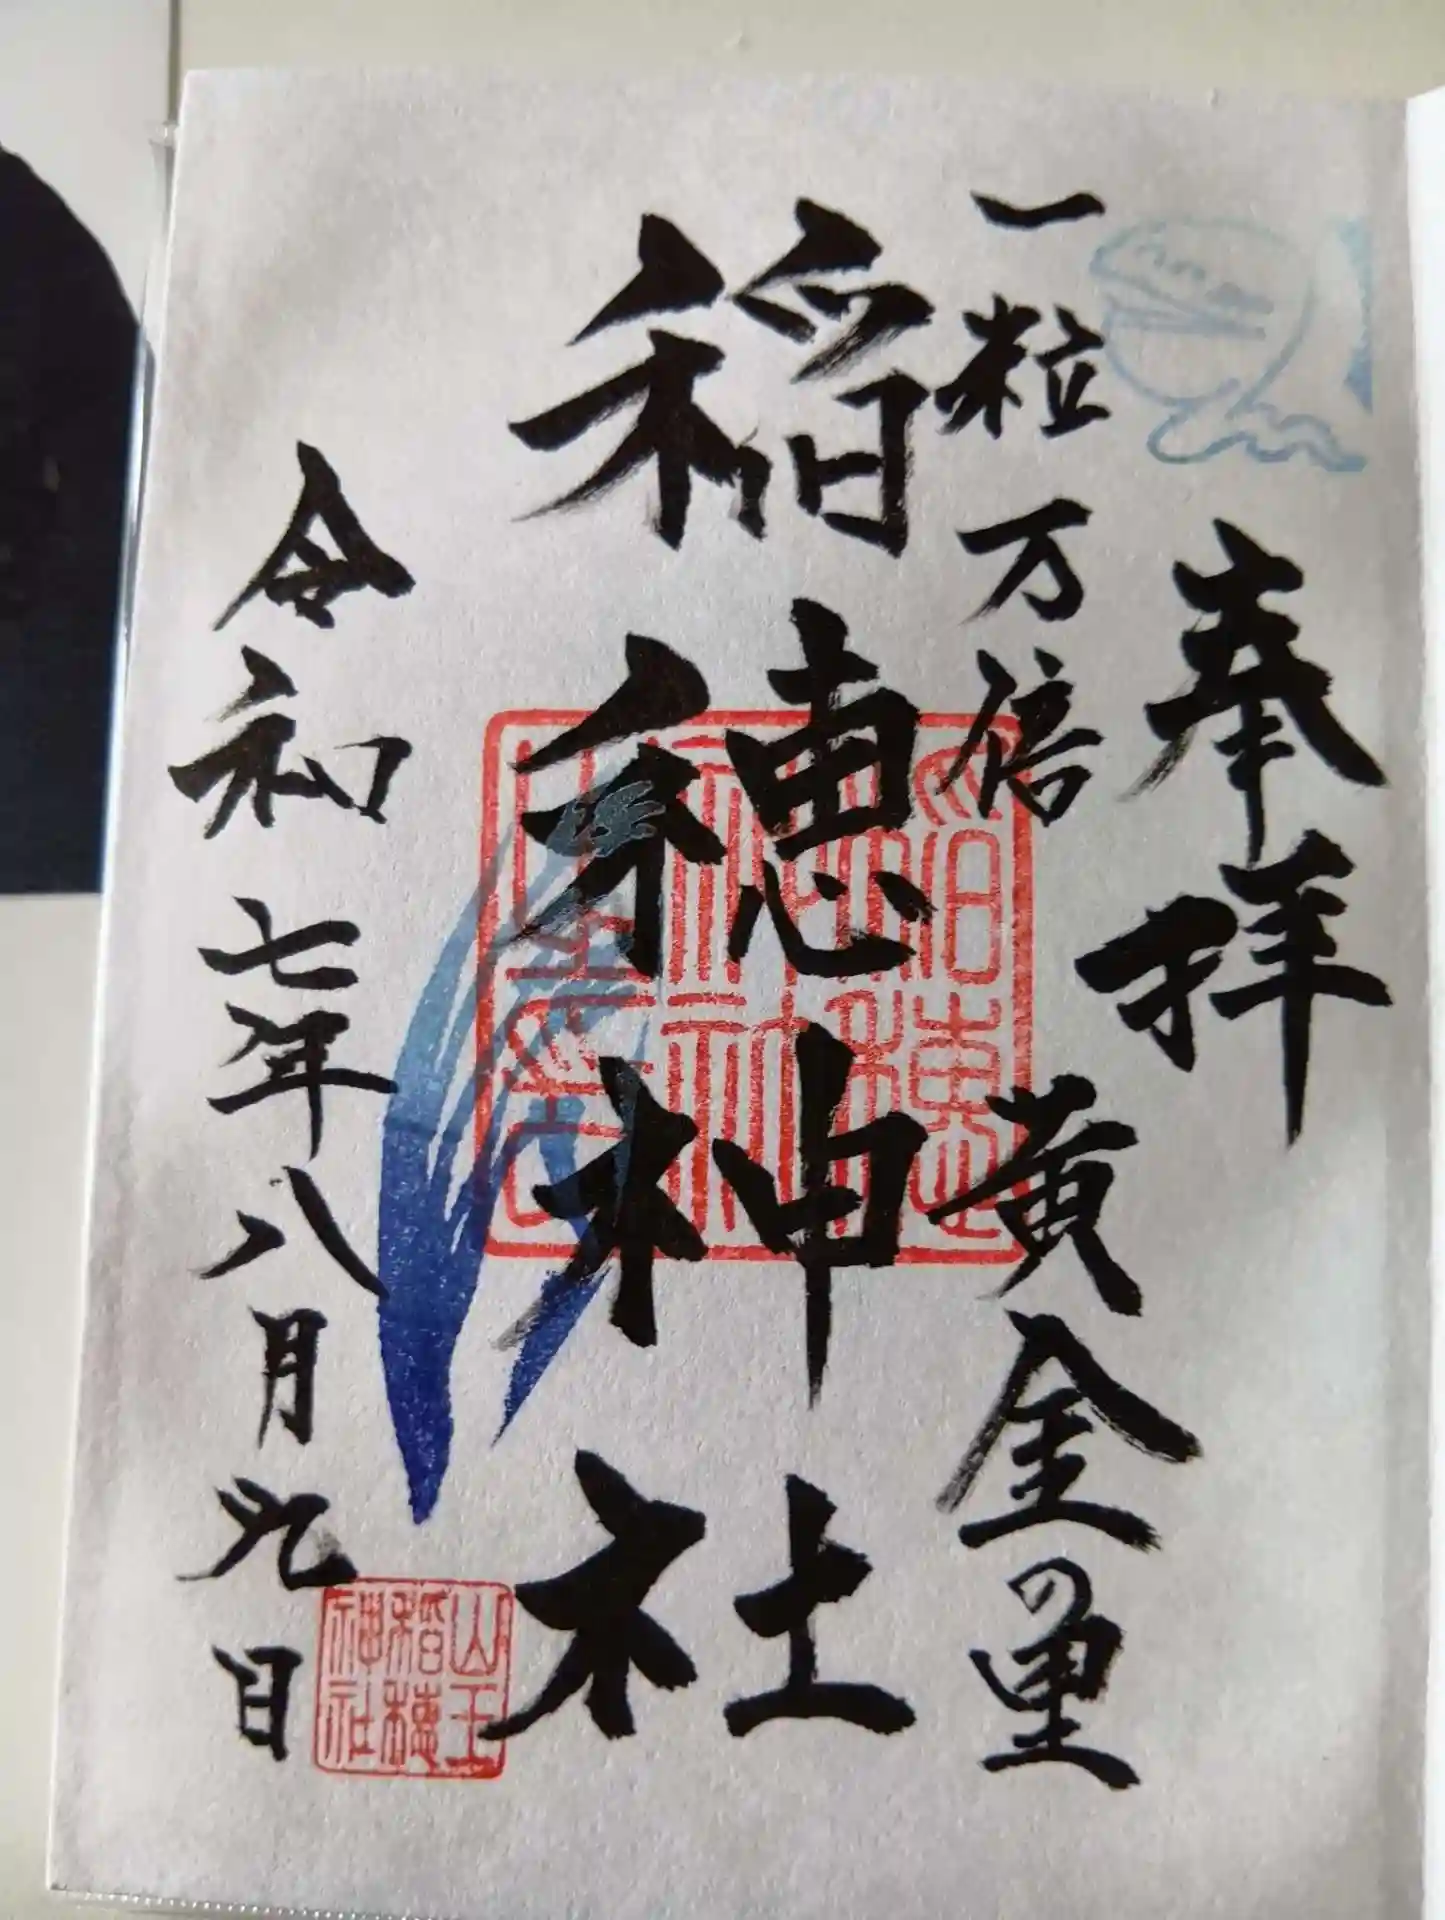 奉拝
一粒万倍 黄金の里
稲穂神社
令和七年八月九日
山王
稲穂
神社